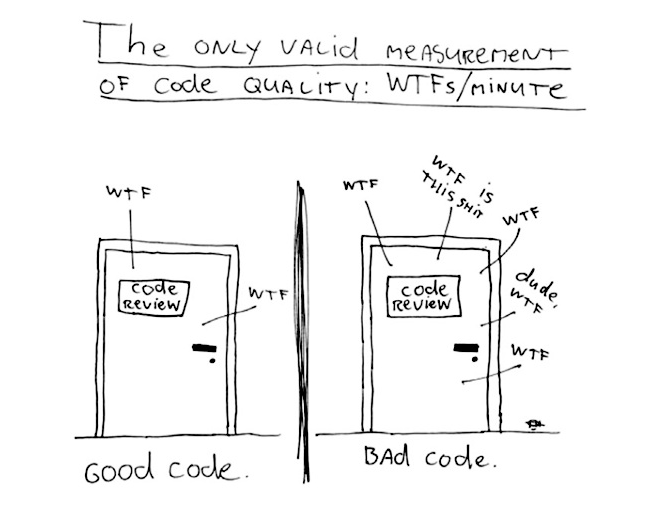 The ONLY VALid MEASUREMENT
OF Code QUALITY: WTFs/MINUTE
WTF
Code
REVIEW
WTF
GOOD Code.
WTF
WTF is
THIS SHIT
WTF
Code
REVIEW
dude,
WTF
WTF
BAd Code.